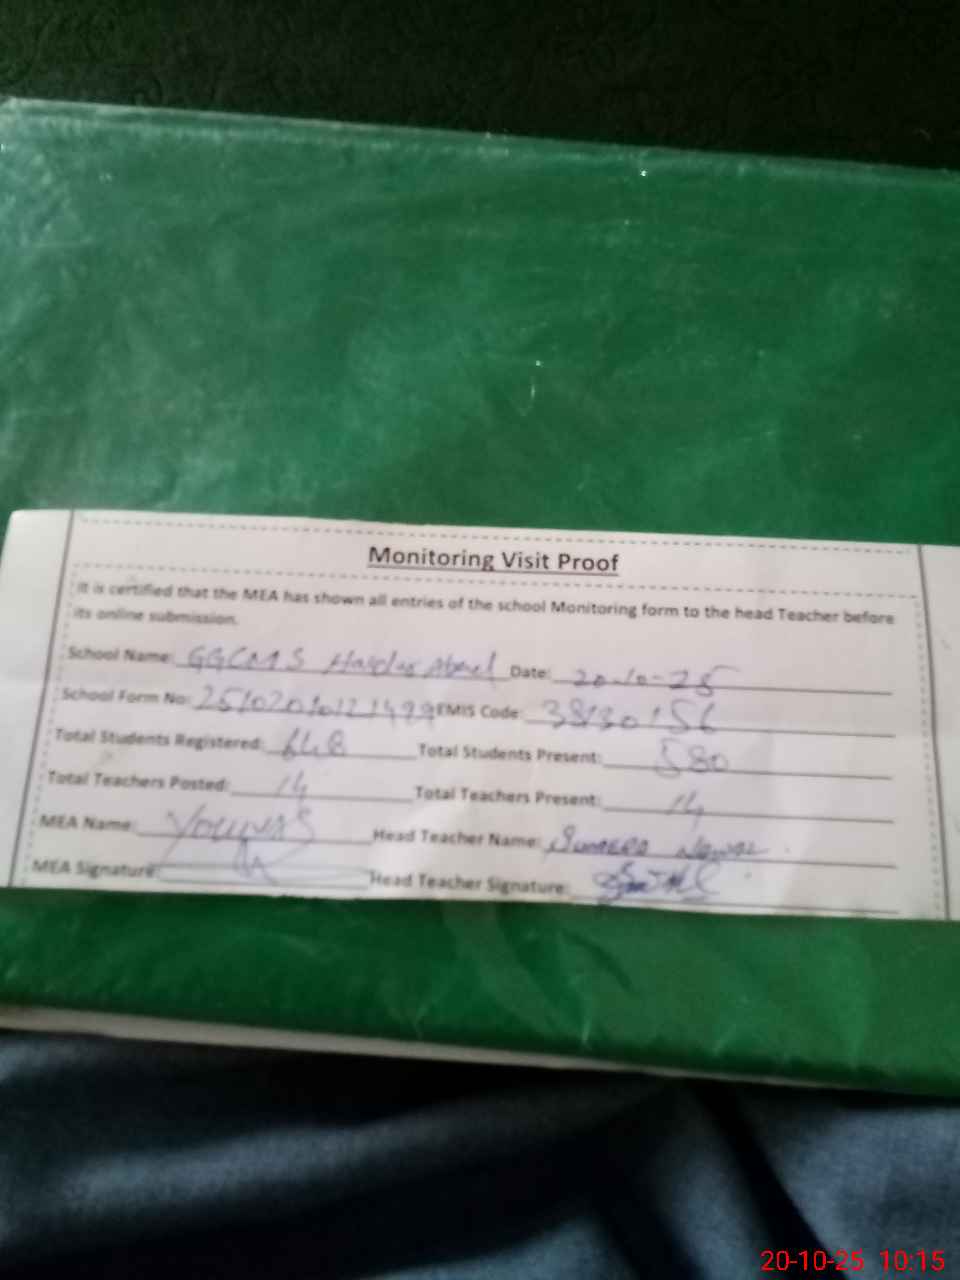 Monitoring Visit Proof
It is certified that the MEA has shown all entries of the school Monitoring form to the head Teacher before
its online submission.
School Name: GGCMS Date: 20-10-25
School Form No: EMIS Code: 38130156
Total Students Registered: 648 Total Students Present: 580
Total Teachers Posted: 14 Total Teachers Present: 14
MEA Name: Head Teacher Name:
MEA Signature: Head Teacher Signature:
20-10-25 10:15